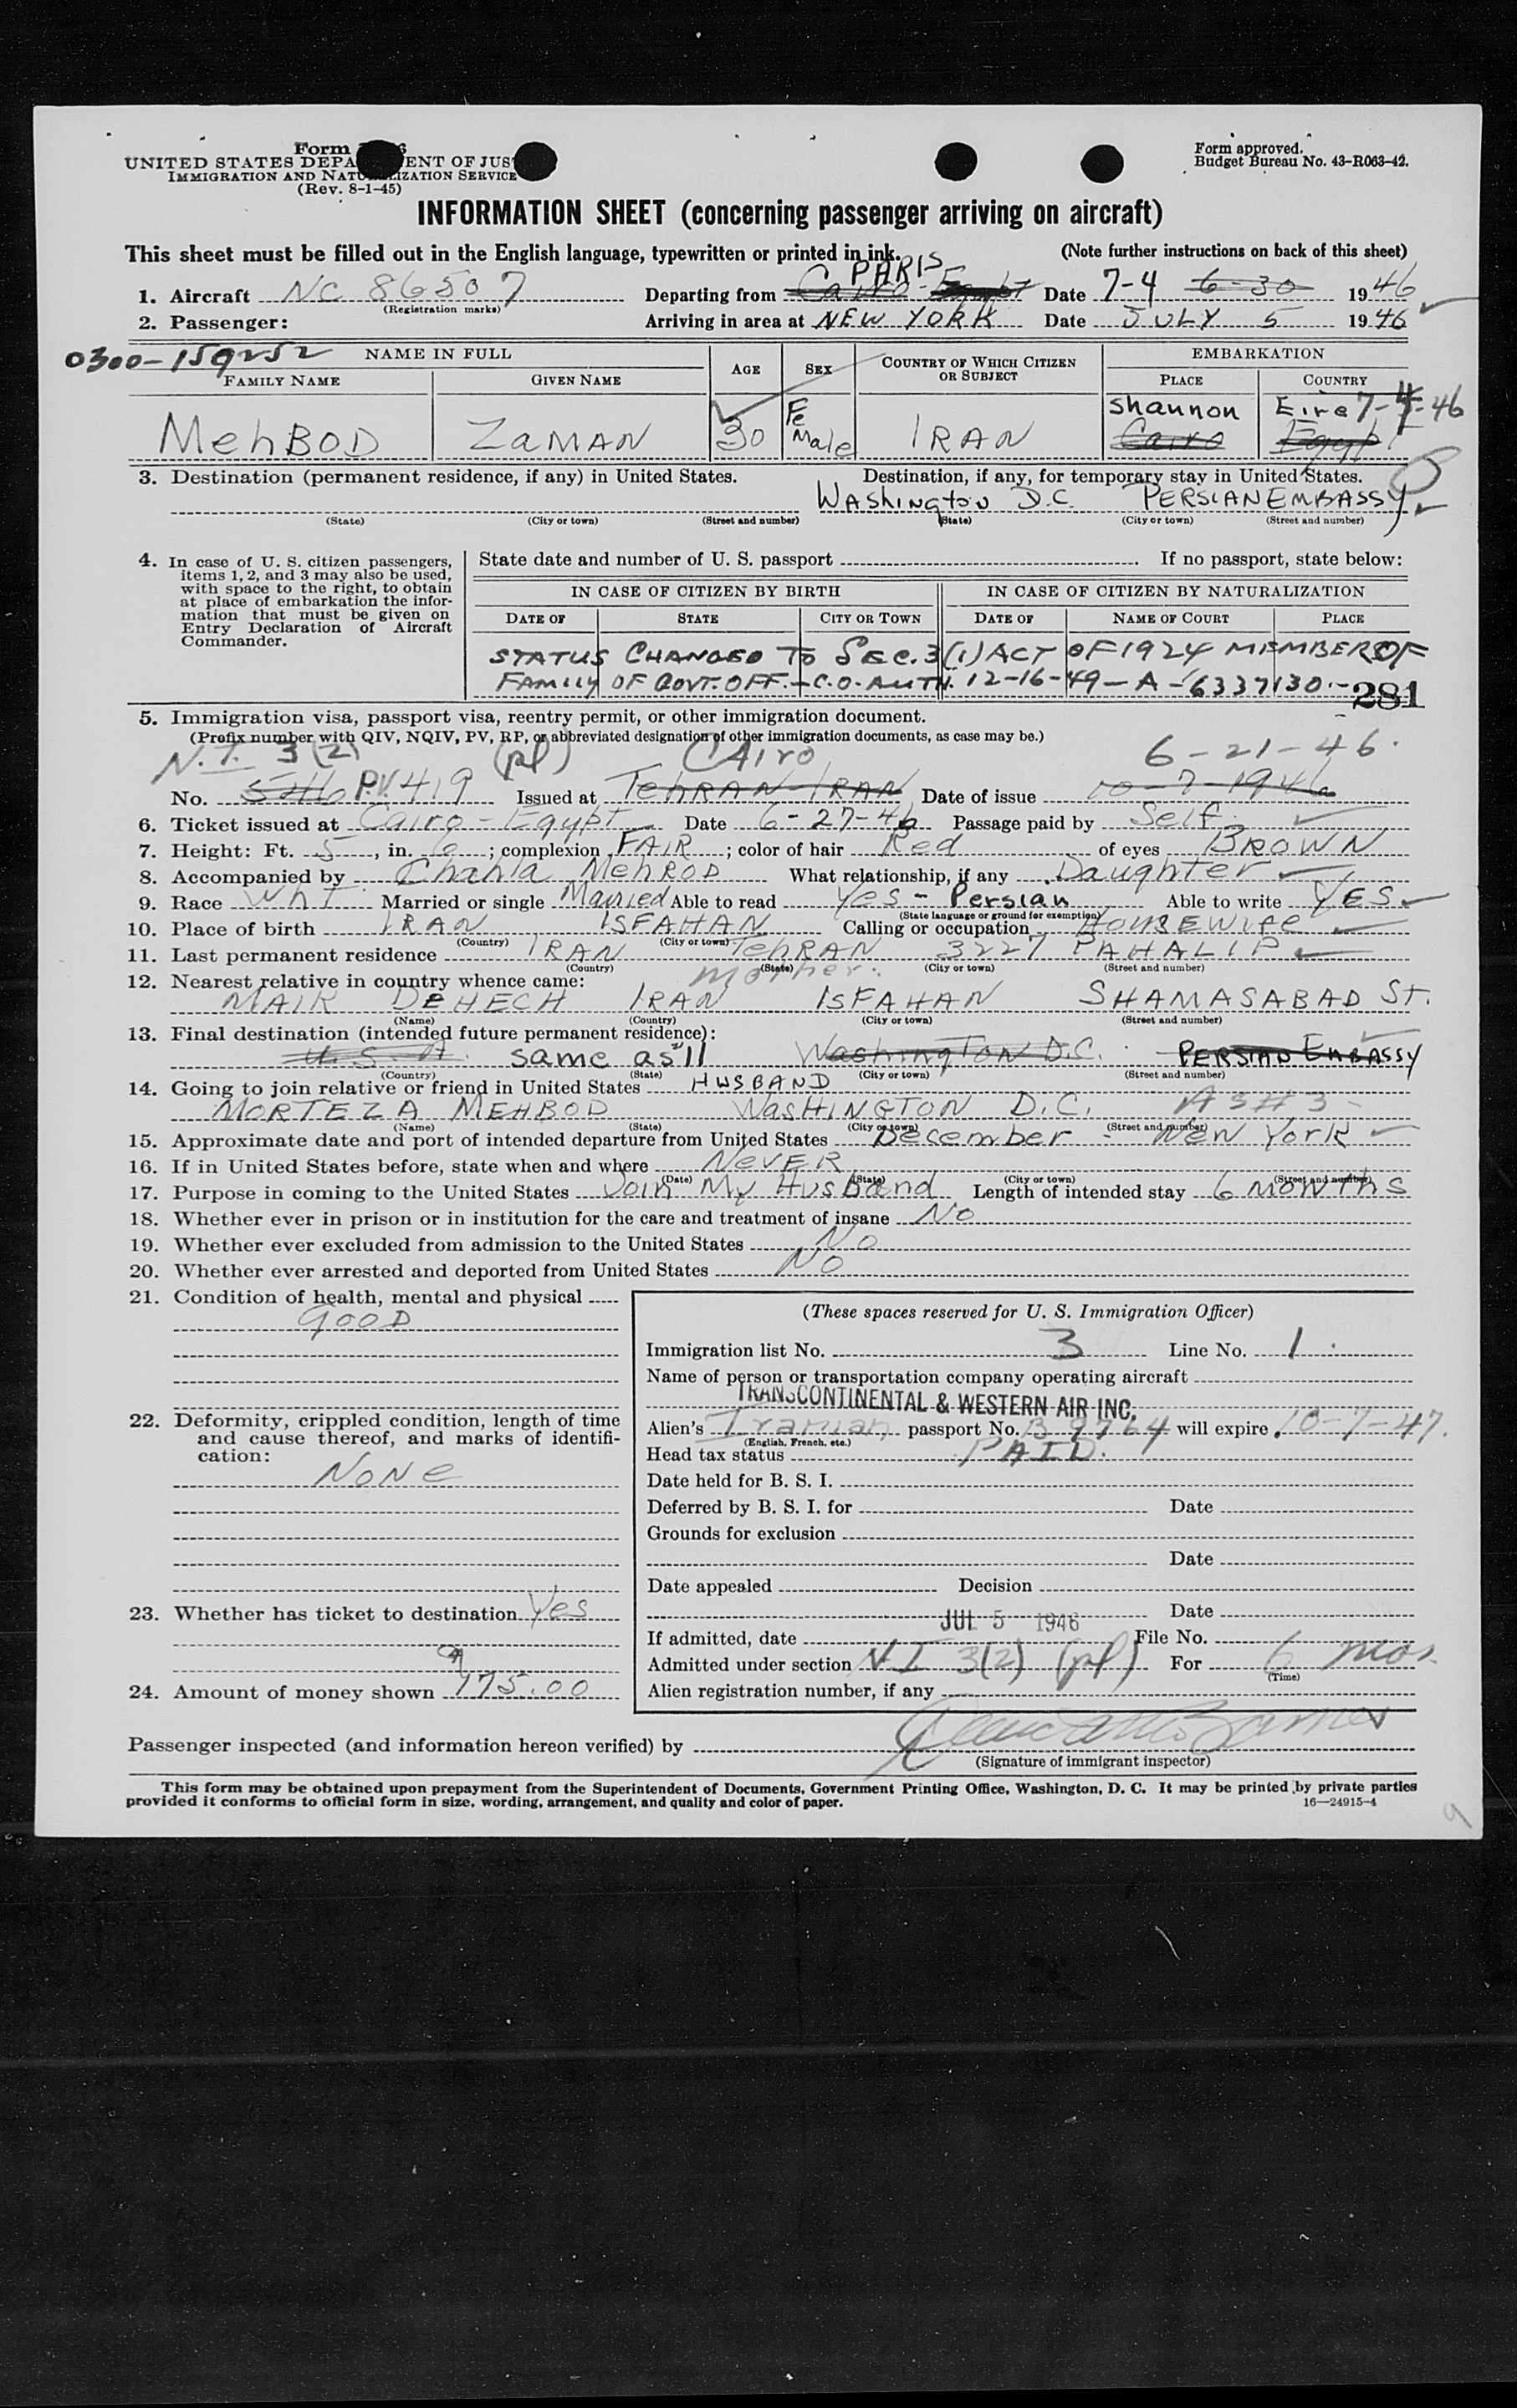 Form
UNITED STATES DEPA ENT OF JUS
IMMIGRATION AND NATU IZATION SERVICE
(Rev. 8-1-45)
Form approved.
Budget Bureau No. 43-R063-42.
INFORMATION SHEET (concerning passenger arriving on aircraft)
This sheet must be filled out in the English language, typewritten or printed in ink. (Note further instructions on back of this sheet)
PARIS
1. Aircraft NC 86507 Departing from Cairo - Egypt Date 7-4 6-30 1946
(Registration marks)
2. Passenger: Arriving in area at NEW YORK Date JULY 5 1946
0300-159252 NAME IN FULL AGE SEX COUNTRY OF WHICH CITIZEN OR SUBJECT EMBARKATION
FAMILY NAME GIVEN NAME PLACE COUNTRY
Shannon Eire 7-4-46
MehBOD ZaMAN 30 Fe Male IRAN Cairo Egypt
3. Destination (permanent residence, if any) in United States. Destination, if any, for temporary stay in United States.
WAshiNgtoN D.C. PERSIAN EMBASSY
(State) (City or town) (Street and number) (State) (City or town) (Street and number)
4. In case of U. S. citizen passengers, items 1, 2, and 3 may also be used, with space to the right, to obtain at place of embarkation the information that must be given on Entry Declaration of Aircraft Commander.
State date and number of U. S. passport If no passport, state below:
IN CASE OF CITIZEN BY BIRTH IN CASE OF CITIZEN BY NATURALIZATION
DATE OF STATE CITY OR TOWN DATE OF NAME OF COURT PLACE
STATUS CHANGED TO SEC. 3(1) ACT OF 1924 MEMBER OF
FAMILY OF GOVT. OFF. - C.O. AUTH. 12-16-49 - A-6337130.- 281
5. Immigration visa, passport visa, reentry permit, or other immigration document.
(Prefix number with QIV, NQIV, PV, RP, or abbreviated designation of other immigration documents, as case may be.)
N.I. 3(2) (pl) CAIro 6-21-46.
No. P.V. 419 Issued at TehRAN-IRAN Date of issue 10-7-1946
6. Ticket issued at Cairo - Egypt Date 6-27-46 Passage paid by Self
7. Height: Ft. 5, in. 6; complexion FAIR; color of hair Red of eyes BROWN
8. Accompanied by Chahla MehROD What relationship, if any Daughter
9. Race WhT Married or single Married Able to read Yes - Persian Able to write YES
(State language or ground for exemption)
10. Place of birth IRAN ISFAHAN Calling or occupation HOUSEWIFE
(Country) (City or town)
11. Last permanent residence IRAN TehRAN 3227 PAHALIP
(Country) (State) (City or town) (Street and number)
12. Nearest relative in country whence came: mother.
MAIR DEHECH IRAN ISFAHAN SHAMASABAD ST.
(Name) (Country) (City or town) (Street and number)
13. Final destination (intended future permanent residence):
U.S.A. same as 11 WashingTON D.C. PERSIAN EMBASSY
(Country) (State) (City or town) (Street and number)
14. Going to join relative or friend in United States HUSBAND
MORTEZA MEHBOD WASHINGTON D.C. AS #3
(Name) (State) (City or town) (Street and number)
15. Approximate date and port of intended departure from United States December - New York
16. If in United States before, state when and where NEVER
(Date) (State) (City or town) (Street and number)
17. Purpose in coming to the United States Join My Husband Length of intended stay 6 MONThS
18. Whether ever in prison or in institution for the care and treatment of insane No
19. Whether ever excluded from admission to the United States No
20. Whether ever arrested and deported from United States No
21. Condition of health, mental and physical
GOOD
22. Deformity, crippled condition, length of time and cause thereof, and marks of identification:
NONE
23. Whether has ticket to destination Yes
24. Amount of money shown 975.00
(These spaces reserved for U. S. Immigration Officer)
Immigration list No. 3 Line No. 1
Name of person or transportation company operating aircraft
TRANSCONTINENTAL & WESTERN AIR INC.
Alien's Iranian passport No. B 9764 will expire 10-7-47.
(English, French, etc.)
Head tax status PAID.
Date held for B. S. I.
Deferred by B. S. I. for Date
Grounds for exclusion
Date
Date appealed Decision
Date
If admitted, date JUL 5 1946 File No.
Admitted under section NI 3(2) (pl) For 6 mos.
(Time)
Alien registration number, if any
Passenger inspected (and information hereon verified) by
(Signature of immigrant inspector)
This form may be obtained upon prepayment from the Superintendent of Documents, Government Printing Office, Washington, D. C. It may be printed by private parties
provided it conforms to official form in size, wording, arrangement, and quality and color of paper. 16—24915-4
9